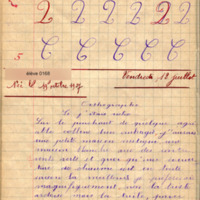 2 2 2 2 2 2
C C C C C
5
élève 0166
Né le 19 octobre 1927
Vendredi 12 juillet
Orthographe
Si j'étais riche
Sur le penchant de quelque agré
able colline bien ombragée, j'aurais
une petite maison rustique, une
maison blanche avec des contre
vents verts et quoi qu'une couver
ture de chaume soit en toute
saison la meilleure je préférerais
magnifiquement, non la triste
ardoise mais la tuile, parce